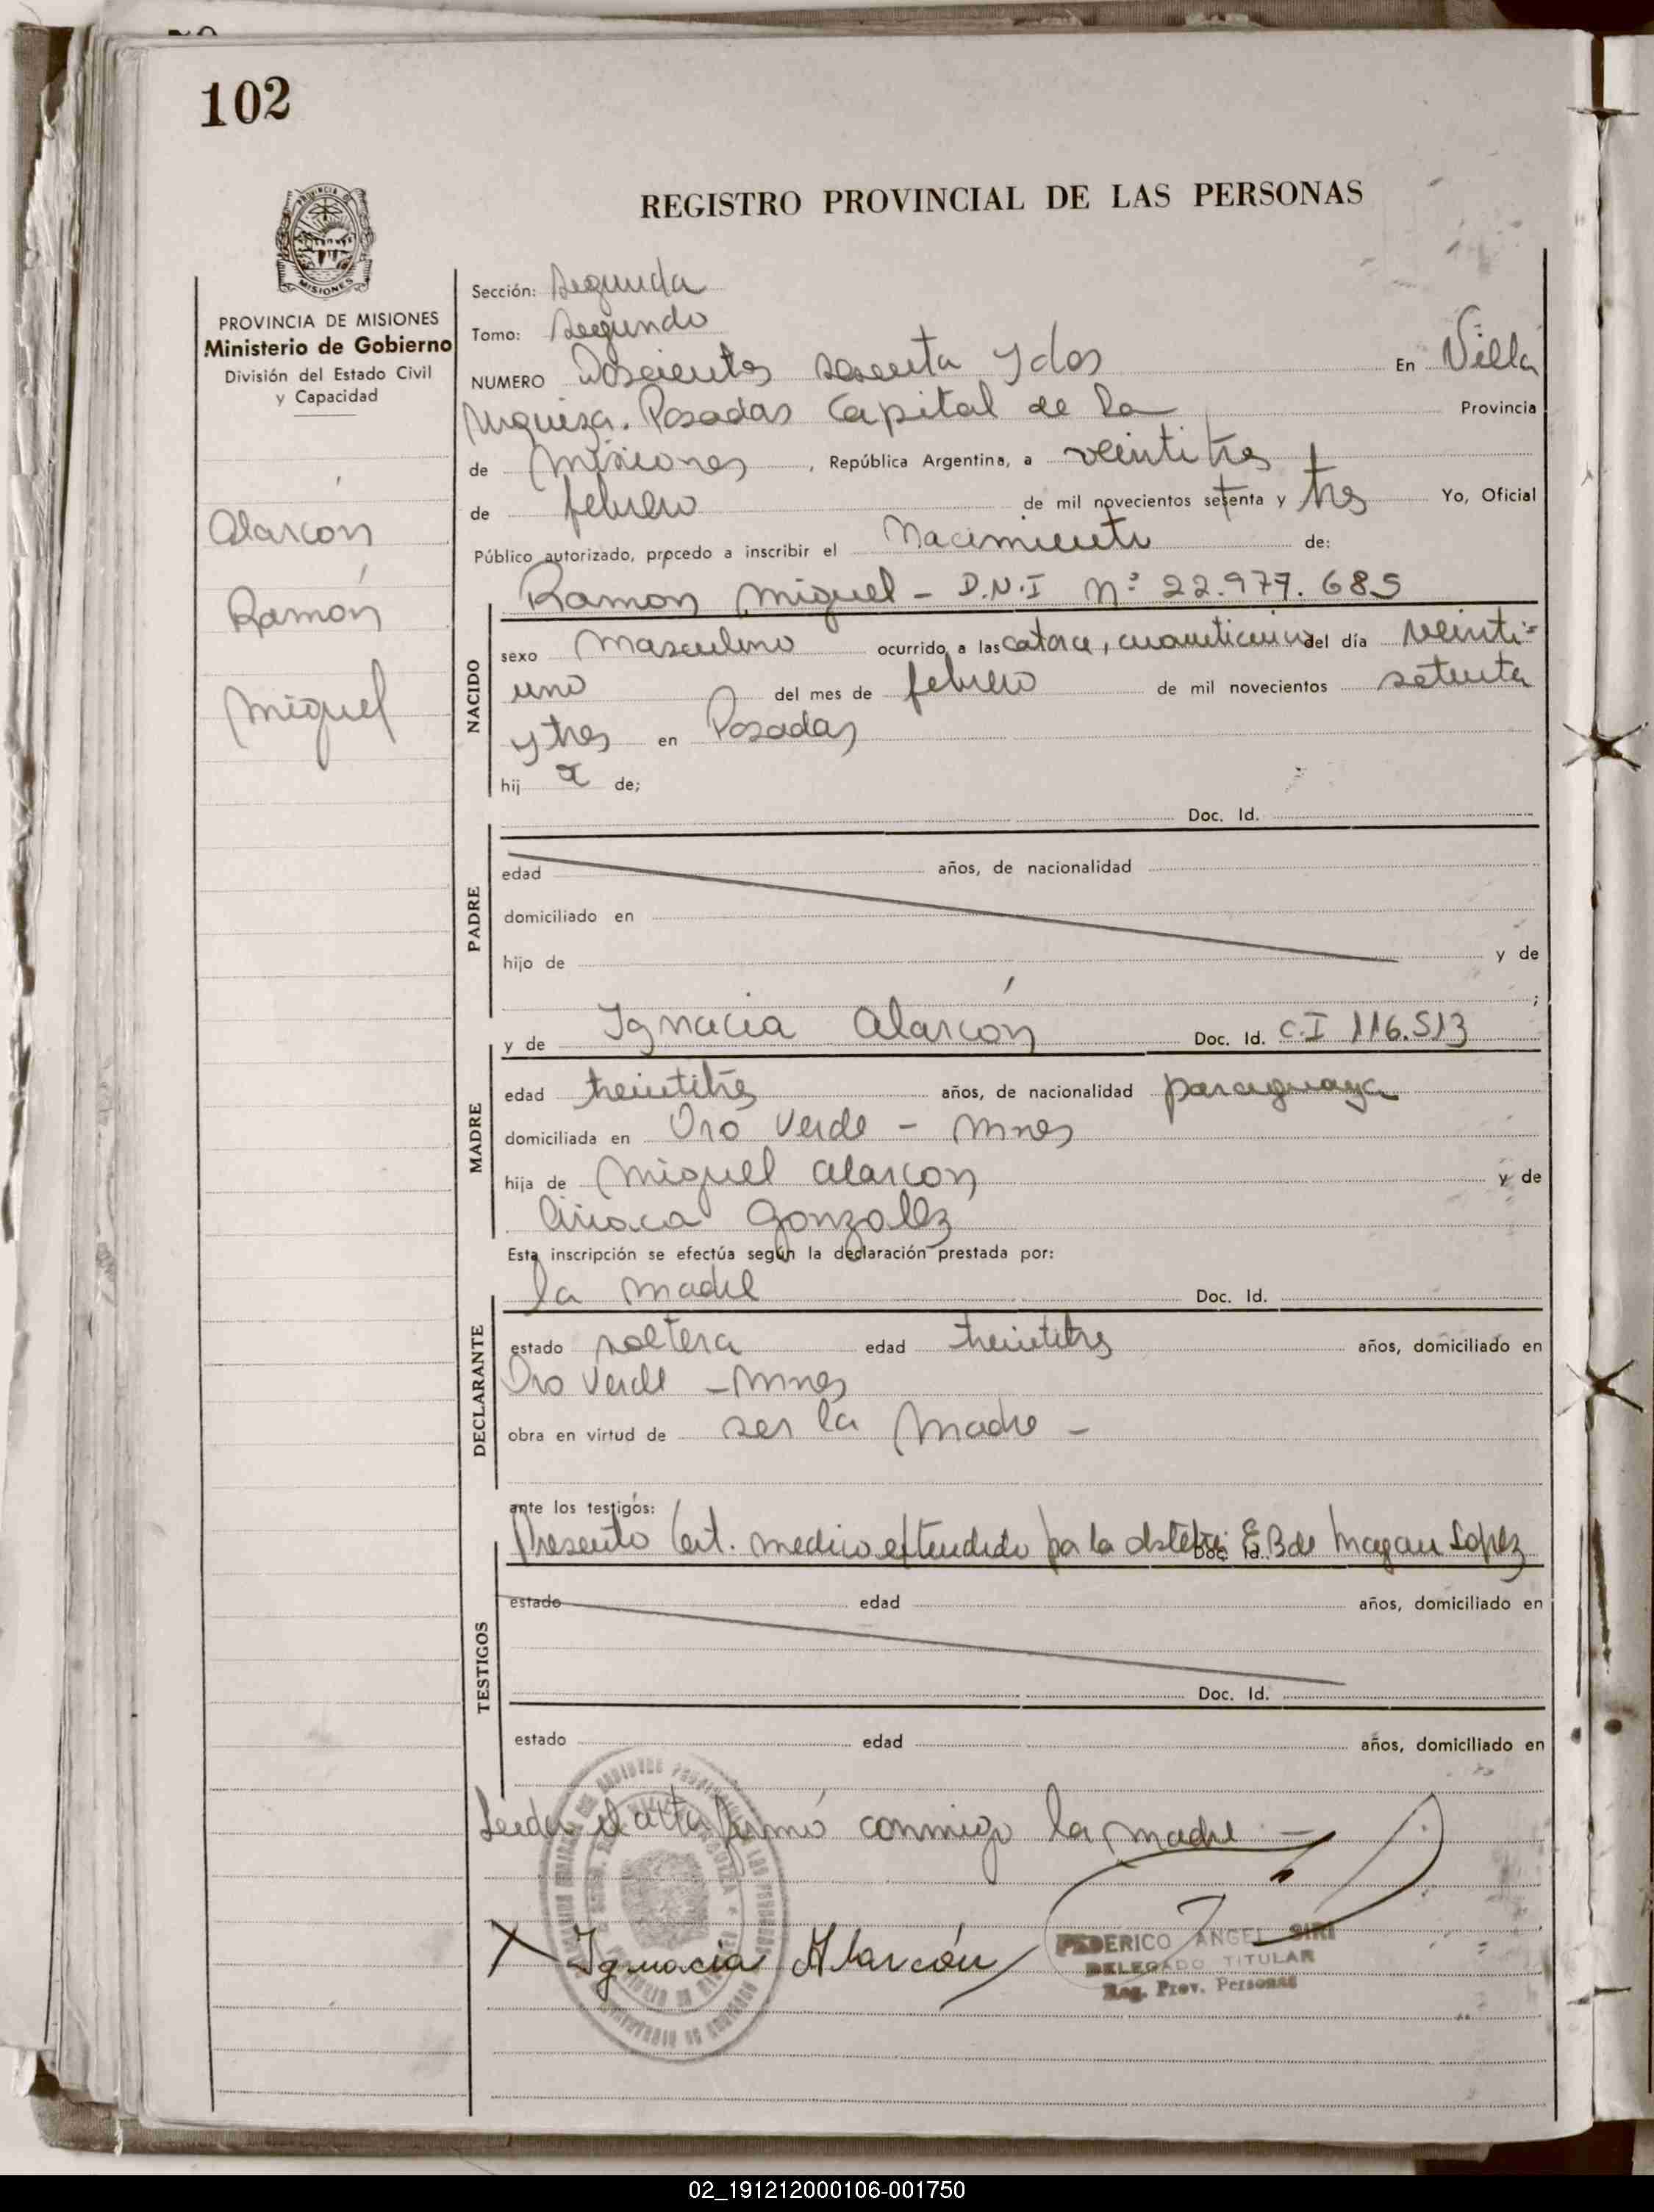 102
REGISTRO PROVINCIAL DE LAS PERSONAS
PROVINCIA DE MISIONES
Ministerio de Gobierno
División del Estado Civil
y Capacidad
Alarcón
Ramón
Miguel
Sección: Segunda
Tomo: Segundo
NUMERO Doscientos sesenta y dos En Villa
Urquiza. Posadas Capital de la Provincia
de Misiones, República Argentina, a veintitres
de febrero de mil novecientos setenta y tres Yo, Oficial
Público autorizado, procedo a inscribir el Nacimiento de:
Ramon Miguel - D.N.I Nº 22.977.685
NACIDO
sexo masculino ocurrido a las catorce, cuarenticinco del día veinti=
uno del mes de febrero de mil novecientos setenta
y tres en Posadas
hij de;
Doc. Id.
PADRE
edad años, de nacionalidad
domiciliado en
hijo de y de
;
y de Ignacia Alarcón Doc. Id. C.I 116.513
MADRE
edad treintitres años, de nacionalidad paraguaya
domiciliada en Oro Verde - Mnes
hija de Miguel Alarcon y de
Gonzalez
Esta inscripción se efectúa según la declaración prestada por:
la madre Doc. Id.
DECLARANTE
estado soltera edad treintitres años, domiciliado en
Oro Verde - Mnes
obra en virtud de ser la madre -
ante los testigos:
Presento Cert. medico extendido por la obstetri: E.B de Magan Lopez Doc. Id.
TESTIGOS
estado edad años, domiciliado en
Doc. Id.
estado edad años, domiciliado en
Leida el acta firmó conmigo la madre -
X Ignacia Alarcón
FEDERICO ANGEL SIRI
DELEGADO TITULAR
Reg. Prov. Personas
02_191212000106-001750